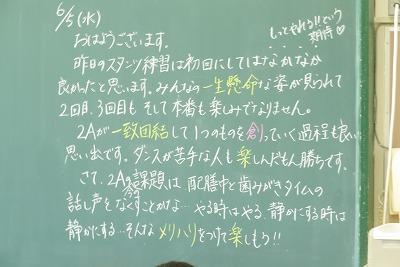 6/5(水)
もっとやれる!!という
期待♡
おはようございます。
昨日のスタンツ練習は初回にしてはなかなか
良かったと思います。みんなの一生懸命な姿が見られて
2回目、3回目も そして本番も楽しみでなりません。
2Aが一致団結して1つのものを創っていく過程も良い
思い出です。ダンスが苦手な人も楽しんだもん勝ちです。
さて、2Aの課題は 配膳中と歯みがきタイムの
話し声をなくすことかな…やる時はやる。静かにする時は
静かにする…そんなメリハリをつけて楽しもう!!